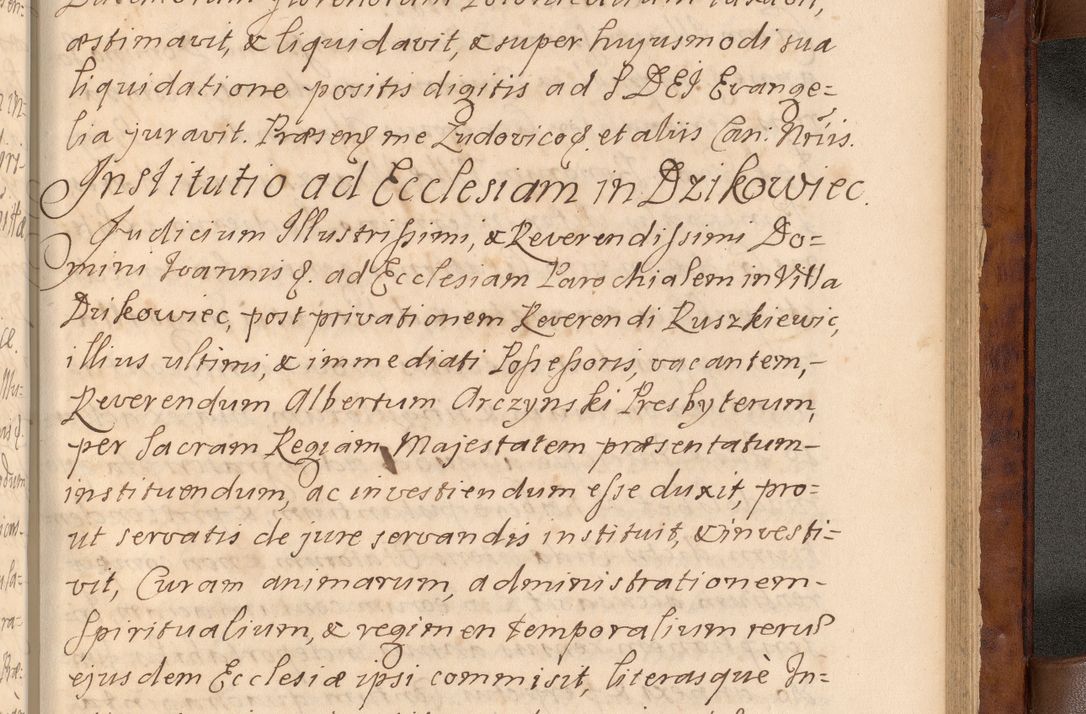 æstimavit, & liquidavit, & super hujusmodi sua
liquidatione positis digitis ad S DEI Evange=
lia juravit. Præsen\[ꝗ] me Ludovico\[ꝗ] et aliis Can: Nriis.
Institutio ad Ecclesiam in Dzikowiec.
Judicium Illustrissimi, & Reverendissimi Do=
mini Joannis ꝗ. ad Ecclesiam Parochialem in Villa
Dzikowiec, post privationem Reverendi Ruszkiewic,
illius ultimi, & immediati Possessoris, vacantem,-
Reverendum Albertum Arczynski Presbyterum,
per Sacram Regiam Majestatem præsentatum-
instituendum, ac investiendum esse duxit, pro=
ut servatis de jure servandis instituit, & investi=
vit, Curam animarum, administrationem-
Spiritualium, & regimen temporalium reru
ejusdem Ecclesiæ ipsi commisit, literasquè In=